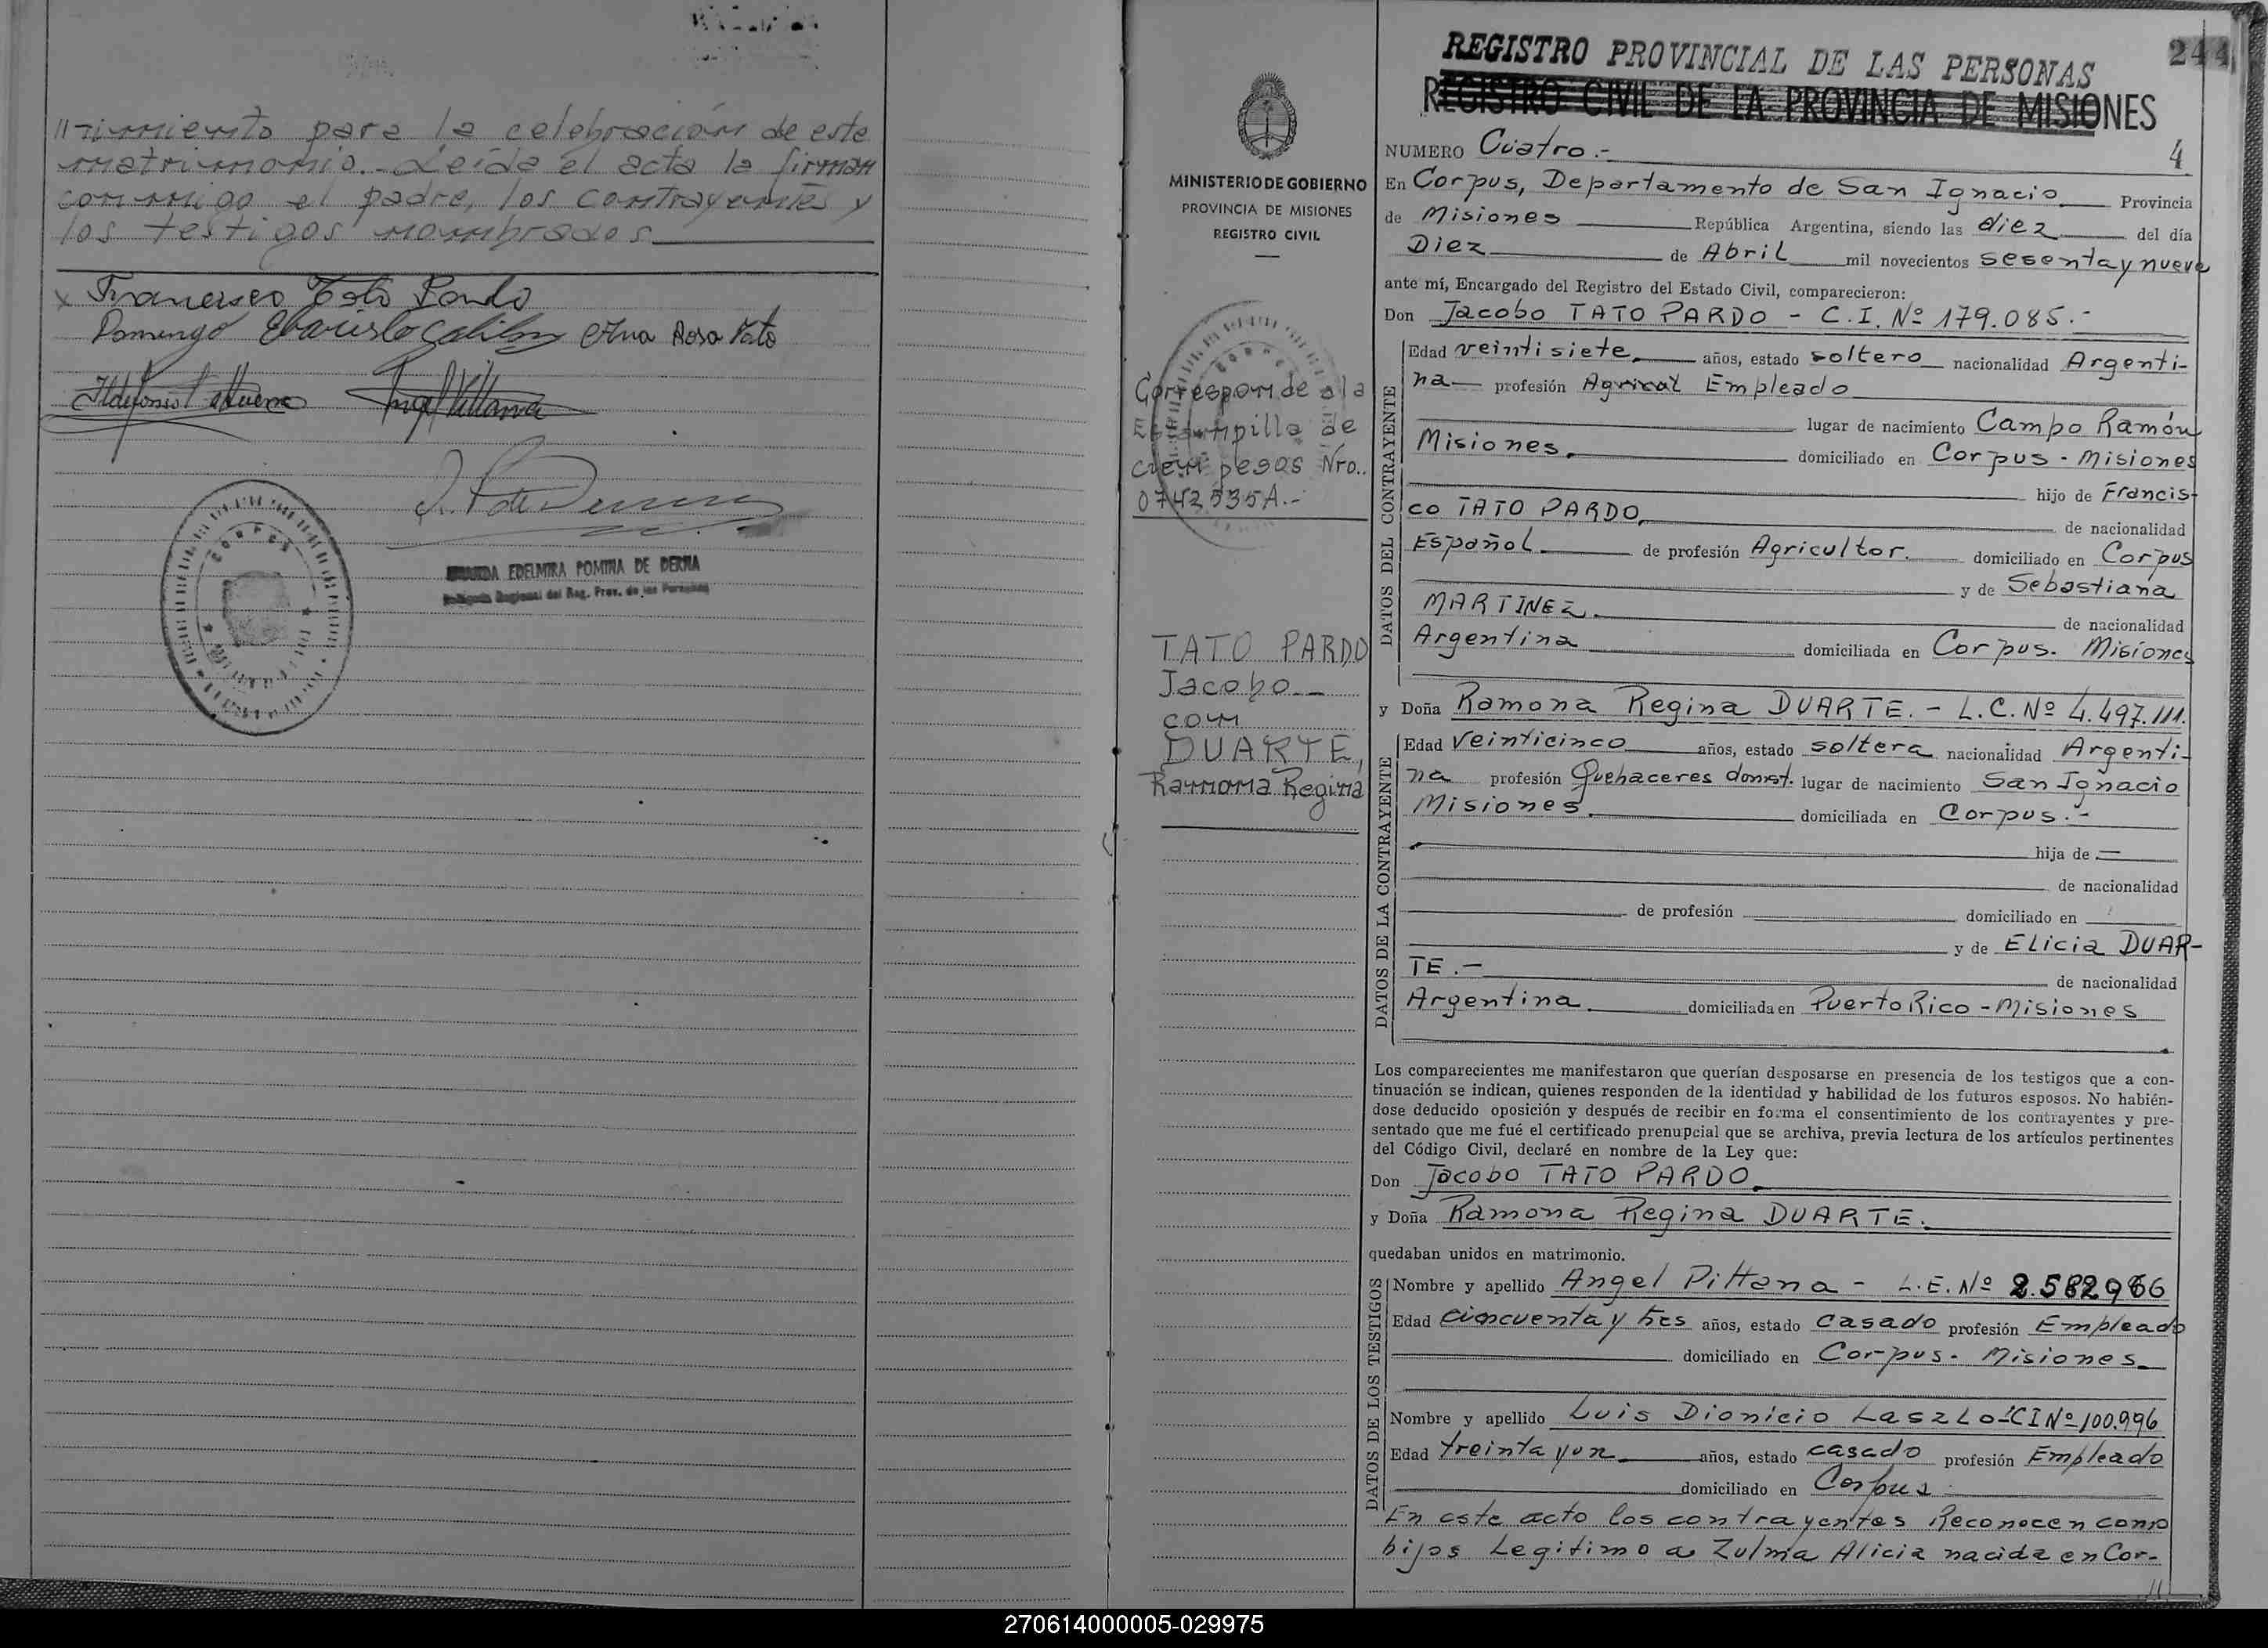 //rimiento para la celebración de este
matrimonio.- Leída el acta la firman
conmigo el padre, los contrayentes y
los testigos nombrados
x Francisco Tato Pardo
Domingo Ebaristo Ana Rosa Tato
CORPUS
EDELMIRA POMINA DE DERNA
Delegada Regional del Reg. Prov. de las Personas
244
REGISTRO PROVINCIAL DE LAS PERSONAS
REGISTRO CIVIL DE LA PROVINCIA DE MISIONES
MINISTERIO DE GOBIERNO
PROVINCIA DE MISIONES
REGISTRO CIVIL
Corresponde a la
Estampilla de
cien pesos Nro..
0742535A.-
TATO PARDO
Jacobo
con
DUARTE,
Ramona Regina
NUMERO Cuatro.- 4
En Corpus, Departamento de San Ignacio Provincia
de Misiones República Argentina, siendo las diez del día
Diez de Abril mil novecientos sesenta y nueve
ante mí, Encargado del Registro del Estado Civil, comparecieron:
Don Jacobo TATO PARDO - C.I. Nº 179.085.-
DATOS DEL CONTRAYENTE
Edad veintisiete años, estado soltero nacionalidad Argenti-
na profesión Empleado
lugar de nacimiento Campo Ramón
Misiones. domiciliado en Corpus - Misiones
hijo de Francis-
co TATO PARDO, de nacionalidad
Español de profesión Agricultor. domiciliado en Corpus
y de Sebastiana
MARTINEZ. de nacionalidad
Argentina domiciliada en Corpus. Misiones
y Doña Ramona Regina DUARTE. - L.C. Nº 4.497.111.
DATOS DE LA CONTRAYENTE
Edad Veinticinco años, estado soltera nacionalidad Argenti-
na profesión Quehaceres domest. lugar de nacimiento San Ignacio
Misiones domiciliada en Corpus.-
hija de —
de nacionalidad
de profesión domiciliado en
y de Elicia DUAR-
TE.- de nacionalidad
Argentina domiciliada en Puerto Rico - Misiones
Los comparecientes me manifestaron que querían desposarse en presencia de los testigos que a con-
tinuación se indican, quienes responden de la identidad y habilidad de los futuros esposos. No habién-
dose deducido oposición y después de recibir en forma el consentimiento de los contrayentes y pre-
sentado que me fué el certificado prenupcial que se archiva, previa lectura de los artículos pertinentes
del Código Civil, declaré en nombre de la Ley que:
Don Jacobo TATO PARDO
y Doña Ramona Regina DUARTE.
quedaban unidos en matrimonio.
DATOS DE LOS TESTIGOS
Nombre y apellido Angel - L.E. Nº 2.582966
Edad cincuenta y tres años, estado casado profesión Empleado
domiciliado en Corpus. Misiones
Nombre y apellido Luis Dionicio Laszlo-CI Nº 100.996
Edad treinta y un años, estado casado profesión Empleado
domiciliado en Corpus
En este acto los contrayentes Reconocen como
hijos Legitimo a Zulma Alicia nacida en Cor-
//
270614000005-029975